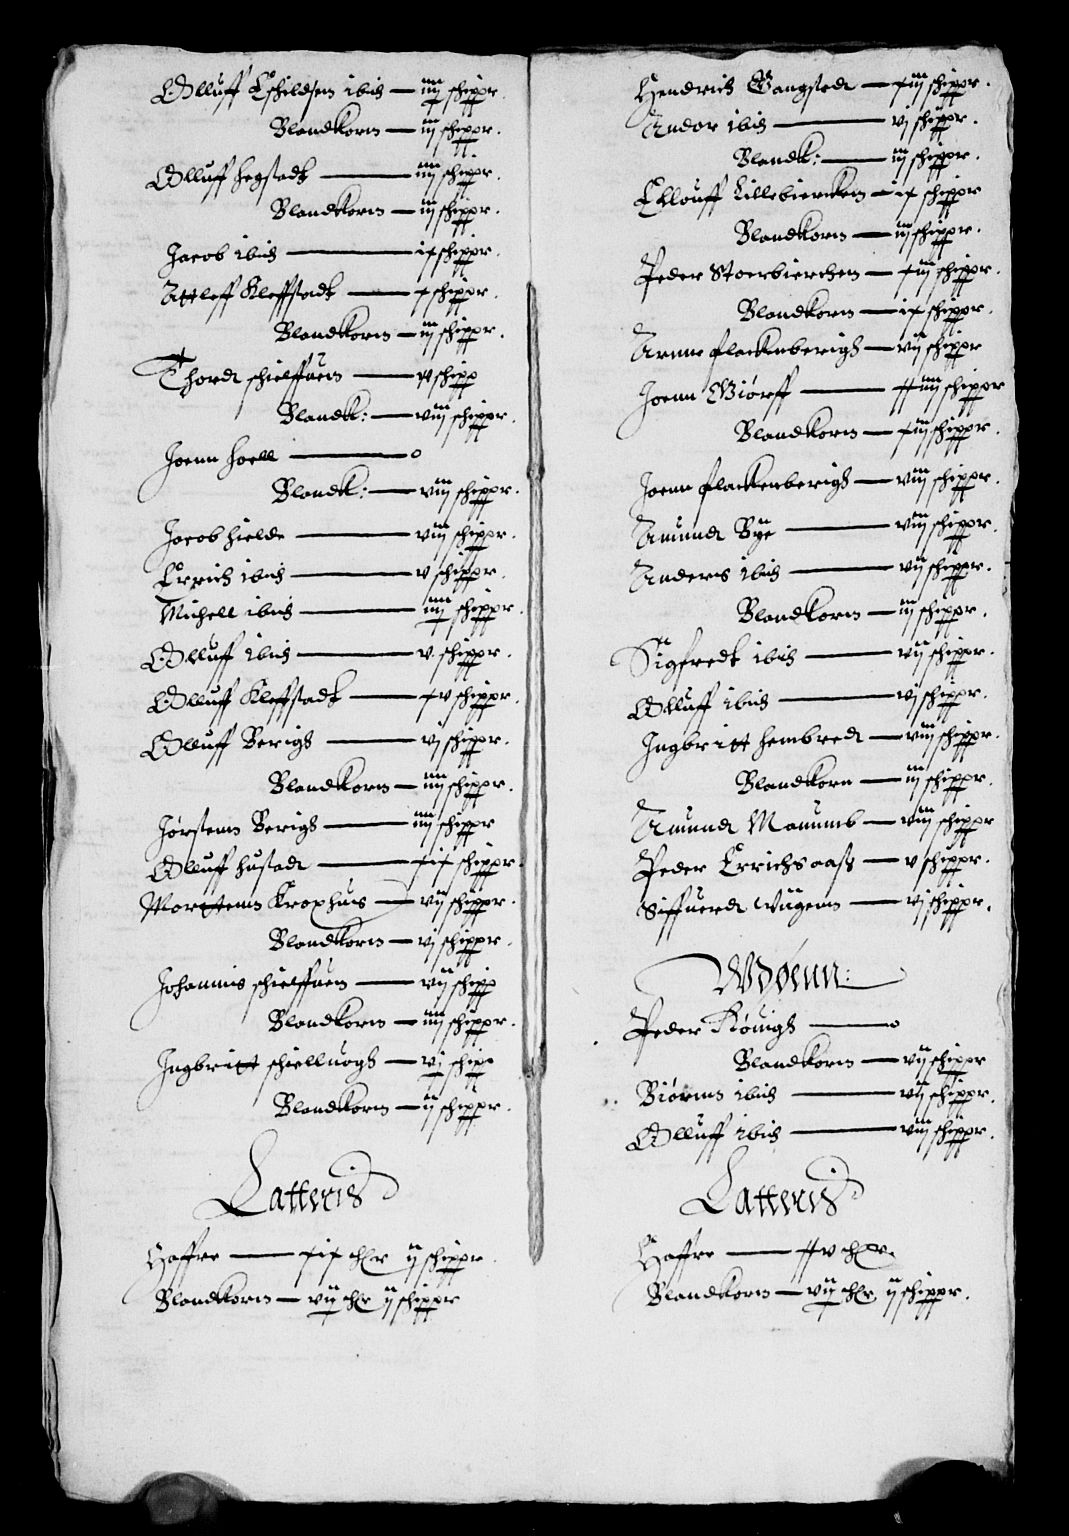 Olluff Eschildsen ibid — iiij schippr.
Blandkorn — iij schippr.
Olluff hegstadt — iiij schippr.
Blandkorn — iij schippr.
Jacob ibid — ix schippr.
Attleff Kleffstadt — x schippr.
Blandkorn — iij schippr.
Thord schielffuen — schipp
Blandk: — viij schippr.
Joenn hoell — o
Blandk: — viij schippr.
Jacob hielde — viij schippr.
Errich ibid — v schippr.
Michell ibid — iiij schippr.
Olluff ibid — v schippr.
Olluff Kleffstadt — xv schippr.
Olluff Berigh — vj schippr.
Blandkorn — iiij schippr.
Jørstenn Berigh — iiij schippr
Olluff hustad — xix schippr.
Morttenn Krophuis — vij schippr.
Blandkorn — vj schippr.
Johannis schielffuen — vij schipp
Blandkorn — iiij schippr.
Ingbritt schielluogh — vj schipp
Blandkorn — ij schippr.
Latteris
Haffre — xix chlr ij schippr.
Blandkorn — vij chlr ij schippr
Hendrich Gangsted — xiij schippr.
Andor ibid — vj schippr.
Blandk: — iij schippr.
Ellouff Lillebiercken — ix schippr
Blandkorn — iij schippr.
Peder Stoerbierchen — xiij schippr.
Blandkorn — ix schippr.
Arnne flackenberigh — vij schippr
Joenn Giørff — xxiiij schippr
Blandkorn — xiij schippr.
Joenn flackenberigh — viij schippr.
Amund Bye — viij schippr.
Anders ibid — vij schippr.
Blandkorn — iij schippr.
Sigfredt ibid — vij schippr.
Olluff ibid — vj schippr.
Ingbritt hembred — viij schippr.
Blandkorn — iij schippr.
Amund Monumb — viij schippr
Peder Errichsaass — v schippr.
Siffuerd Wiigenn — vj schippr.
Wdøenn:
Peder Kønigh — o
Blandkorn — vij schippr
Biørnn ibid — vij schippr.
Olluff ibid — viij schippr.
Latteris
Haffre — xxv chlr.
Blandkorn — vij chlr ij schippr.